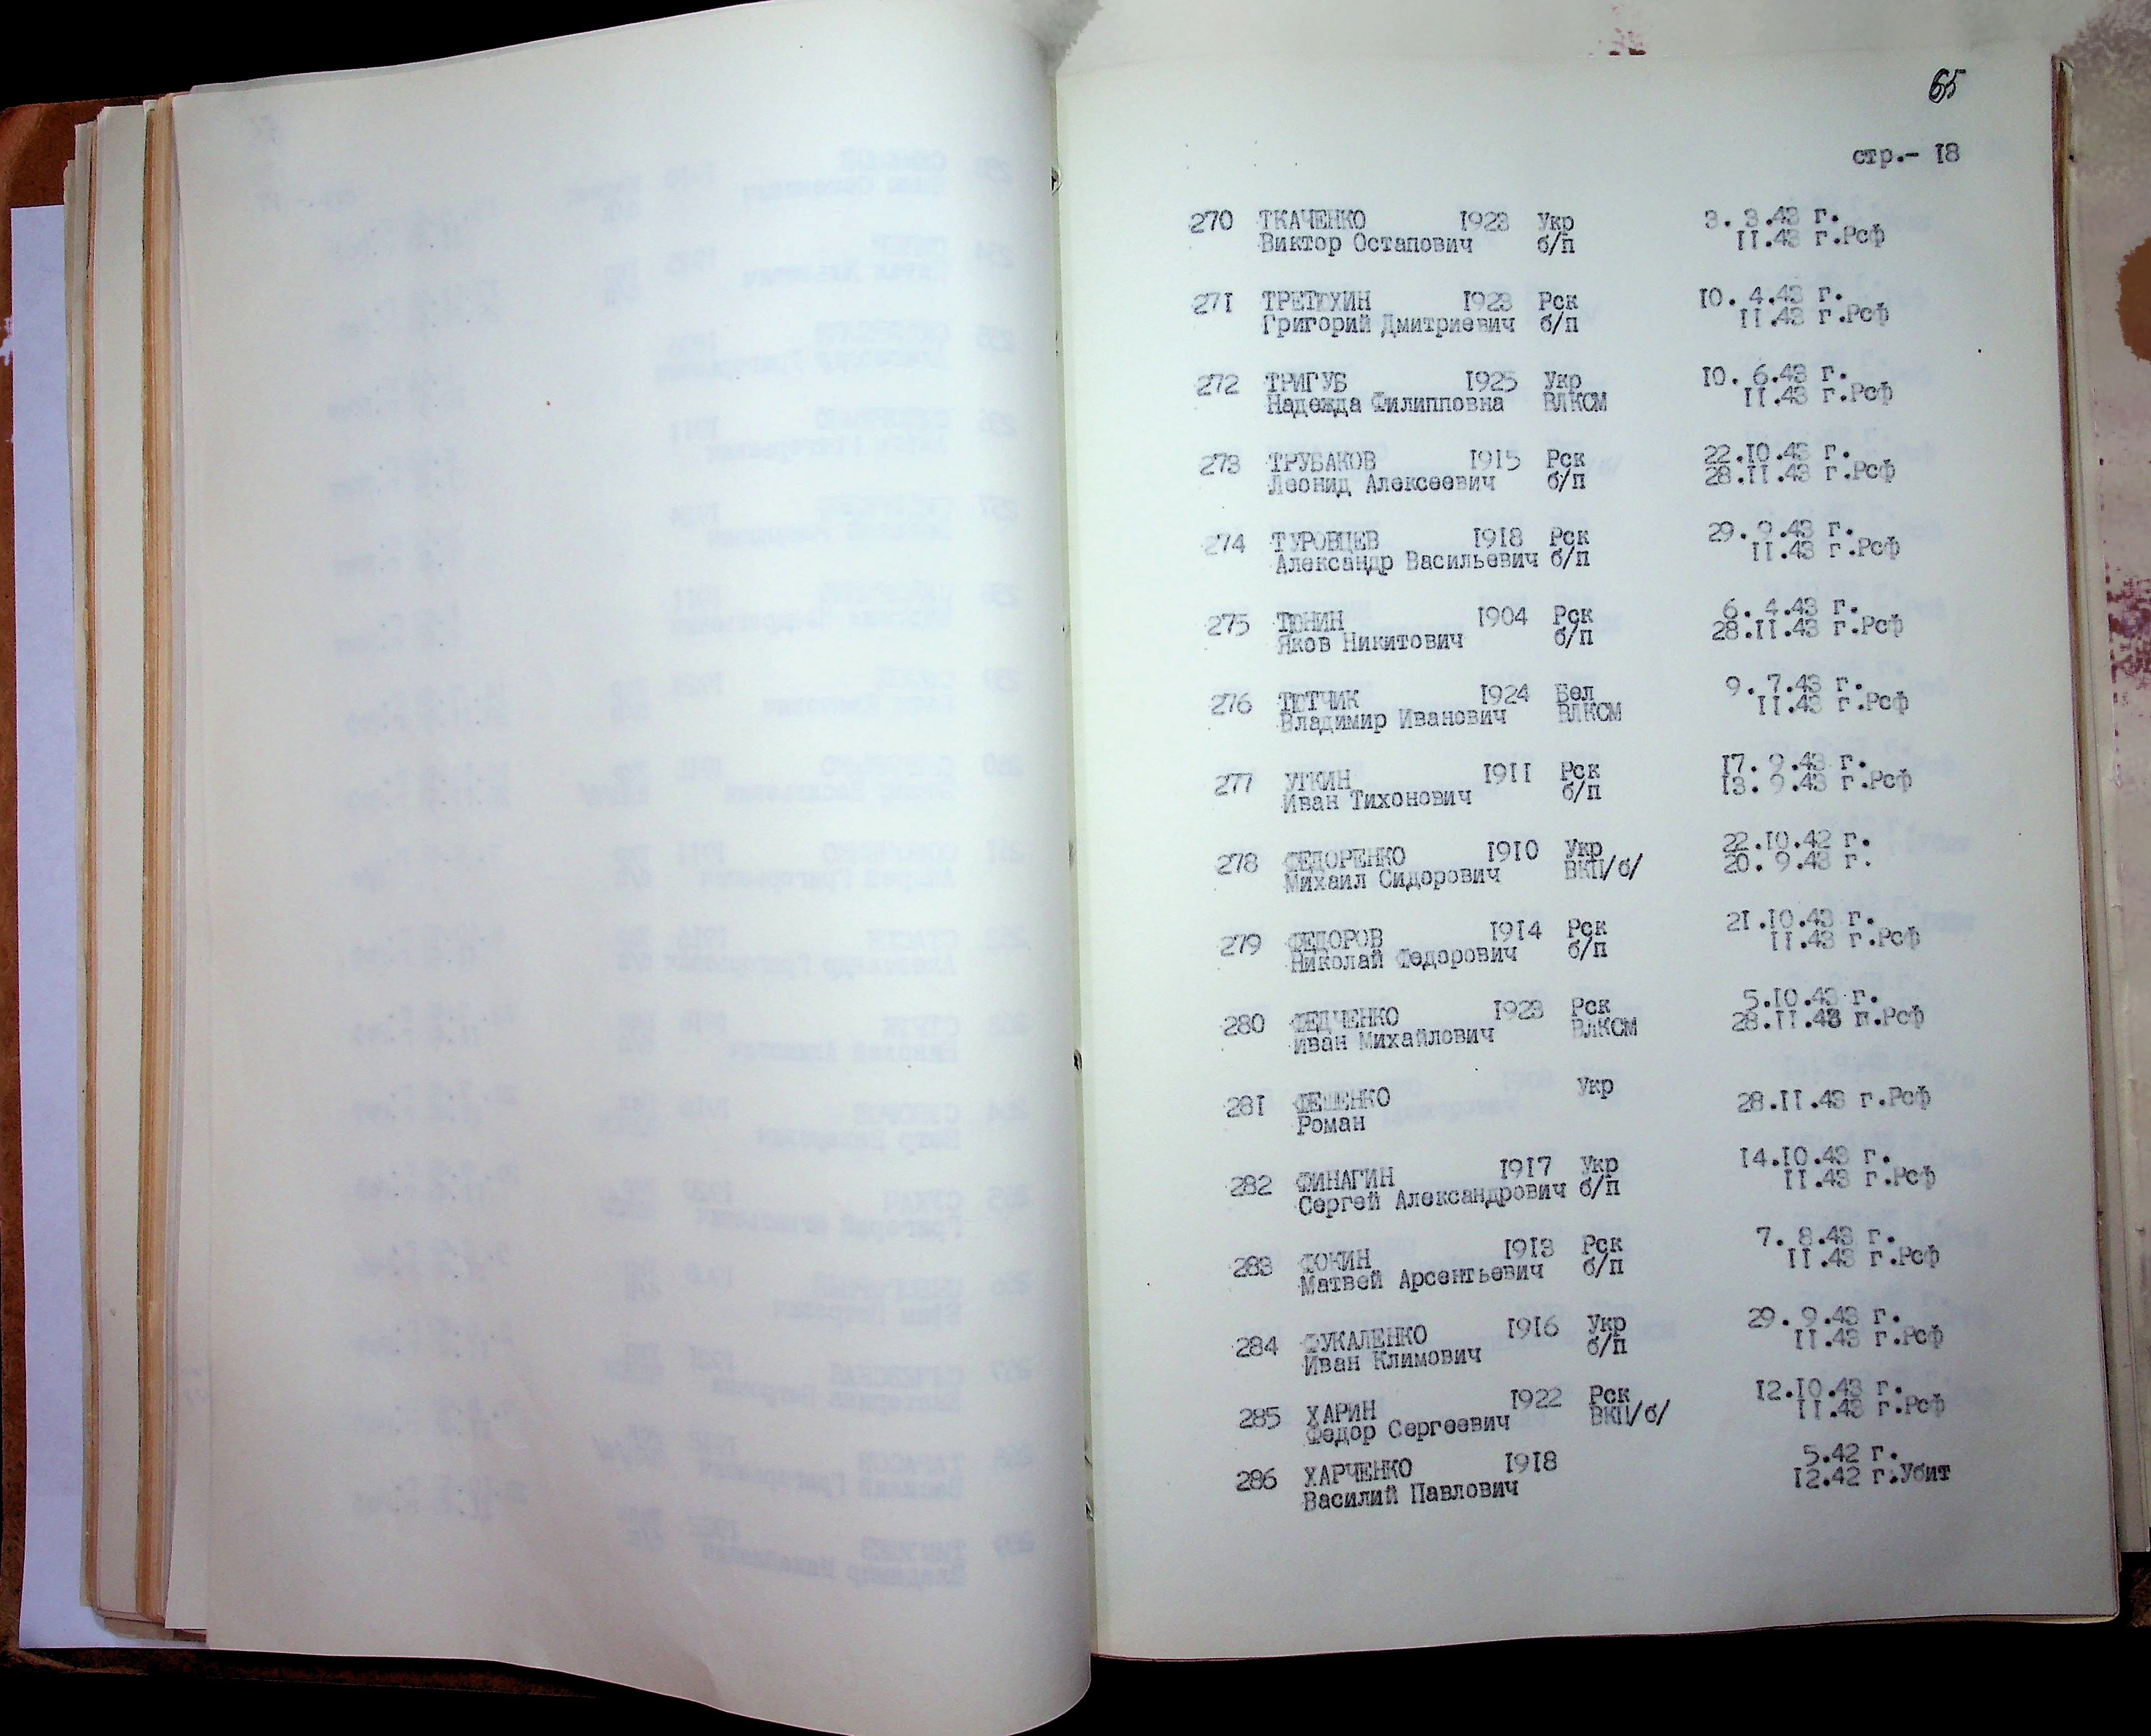 65
стр.- 18
270 ТКАЧЕНКО 1923 Укр 3. 3.43 г.
Виктор Остапович б/п 11.43 г.Рсф
271 ТРЕТЮХИН 1923 Рск 10. 4.43 г.
Григорий Дмитриевич б/п 11.43 г.Рсф
272 ТРИГУБ 1925 Укр 10. 6.43 г.
Надежда Филипповна ВЛКСМ 11.43 г.Рсф
273 ТРУБАКОВ 1915 Рск 22.10.43 г.
Леонид Алексеевич б/п 28.11.43 г.Рсф
274 ТУРОВЦЕВ 1918 Рск 29. 9.43 г.
Александр Васильевич б/п 11.43 г.Рсф
275 ТЮНИН 1904 Рск 6. 4.43 г.
Яков Никитович б/п 28.11.43 г.Рсф
276 ТЮТЧИК 1924 Бел 9. 7.43 г.
Владимир Иванович ВЛКСМ 11.43 г.Рсф
277 УТКИН 1911 Рск 17. 9.43 г.
Иван Тихонович б/п 13. 9.43 г.Рсф
278 ФЕДОРЕНКО 1910 Укр 22.10.42 г.
Михаил Сидорович ВКП/б/ 20. 9.43 г.
279 ФЕДОРОВ 1914 Рск 21.10.43 г.
Николай Федорович б/п 11.43 г.Рсф
280 ФЕДЧЕНКО 1923 Рск 5.10.43 г.
Иван Михайлович ВЛКСМ 28.11.43 г.Рсф
281 ФЕШЕНКО Укр
Роман 28.11.43 г.Рсф
282 ФИНАГИН 1917 Укр 14.10.43 г.
Сергей Александрович б/п 11.43 г.Рсф
283 ФОКИН 1913 Рск 7. 8.43 г.
Матвей Арсентьевич б/п 11.43 г.Рсф
284 ФУКАЛЕНКО 1916 Укр 29. 9.43 г.
Иван Климович б/п 11.43 г.Рсф
285 ХАРИН 1922 Рск 12.10.43 г.
Федор Сергеевич ВКП/б/ 11.43 г.Рсф
286 ХАРЧЕНКО 1918 5.42 г.
Василий Павлович 12.42 г.Убит